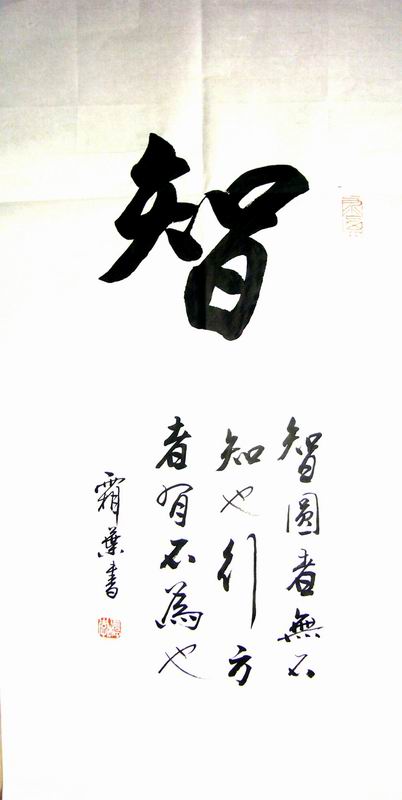 智
智圓者無不
知也行方
者有不為也
霜葉書